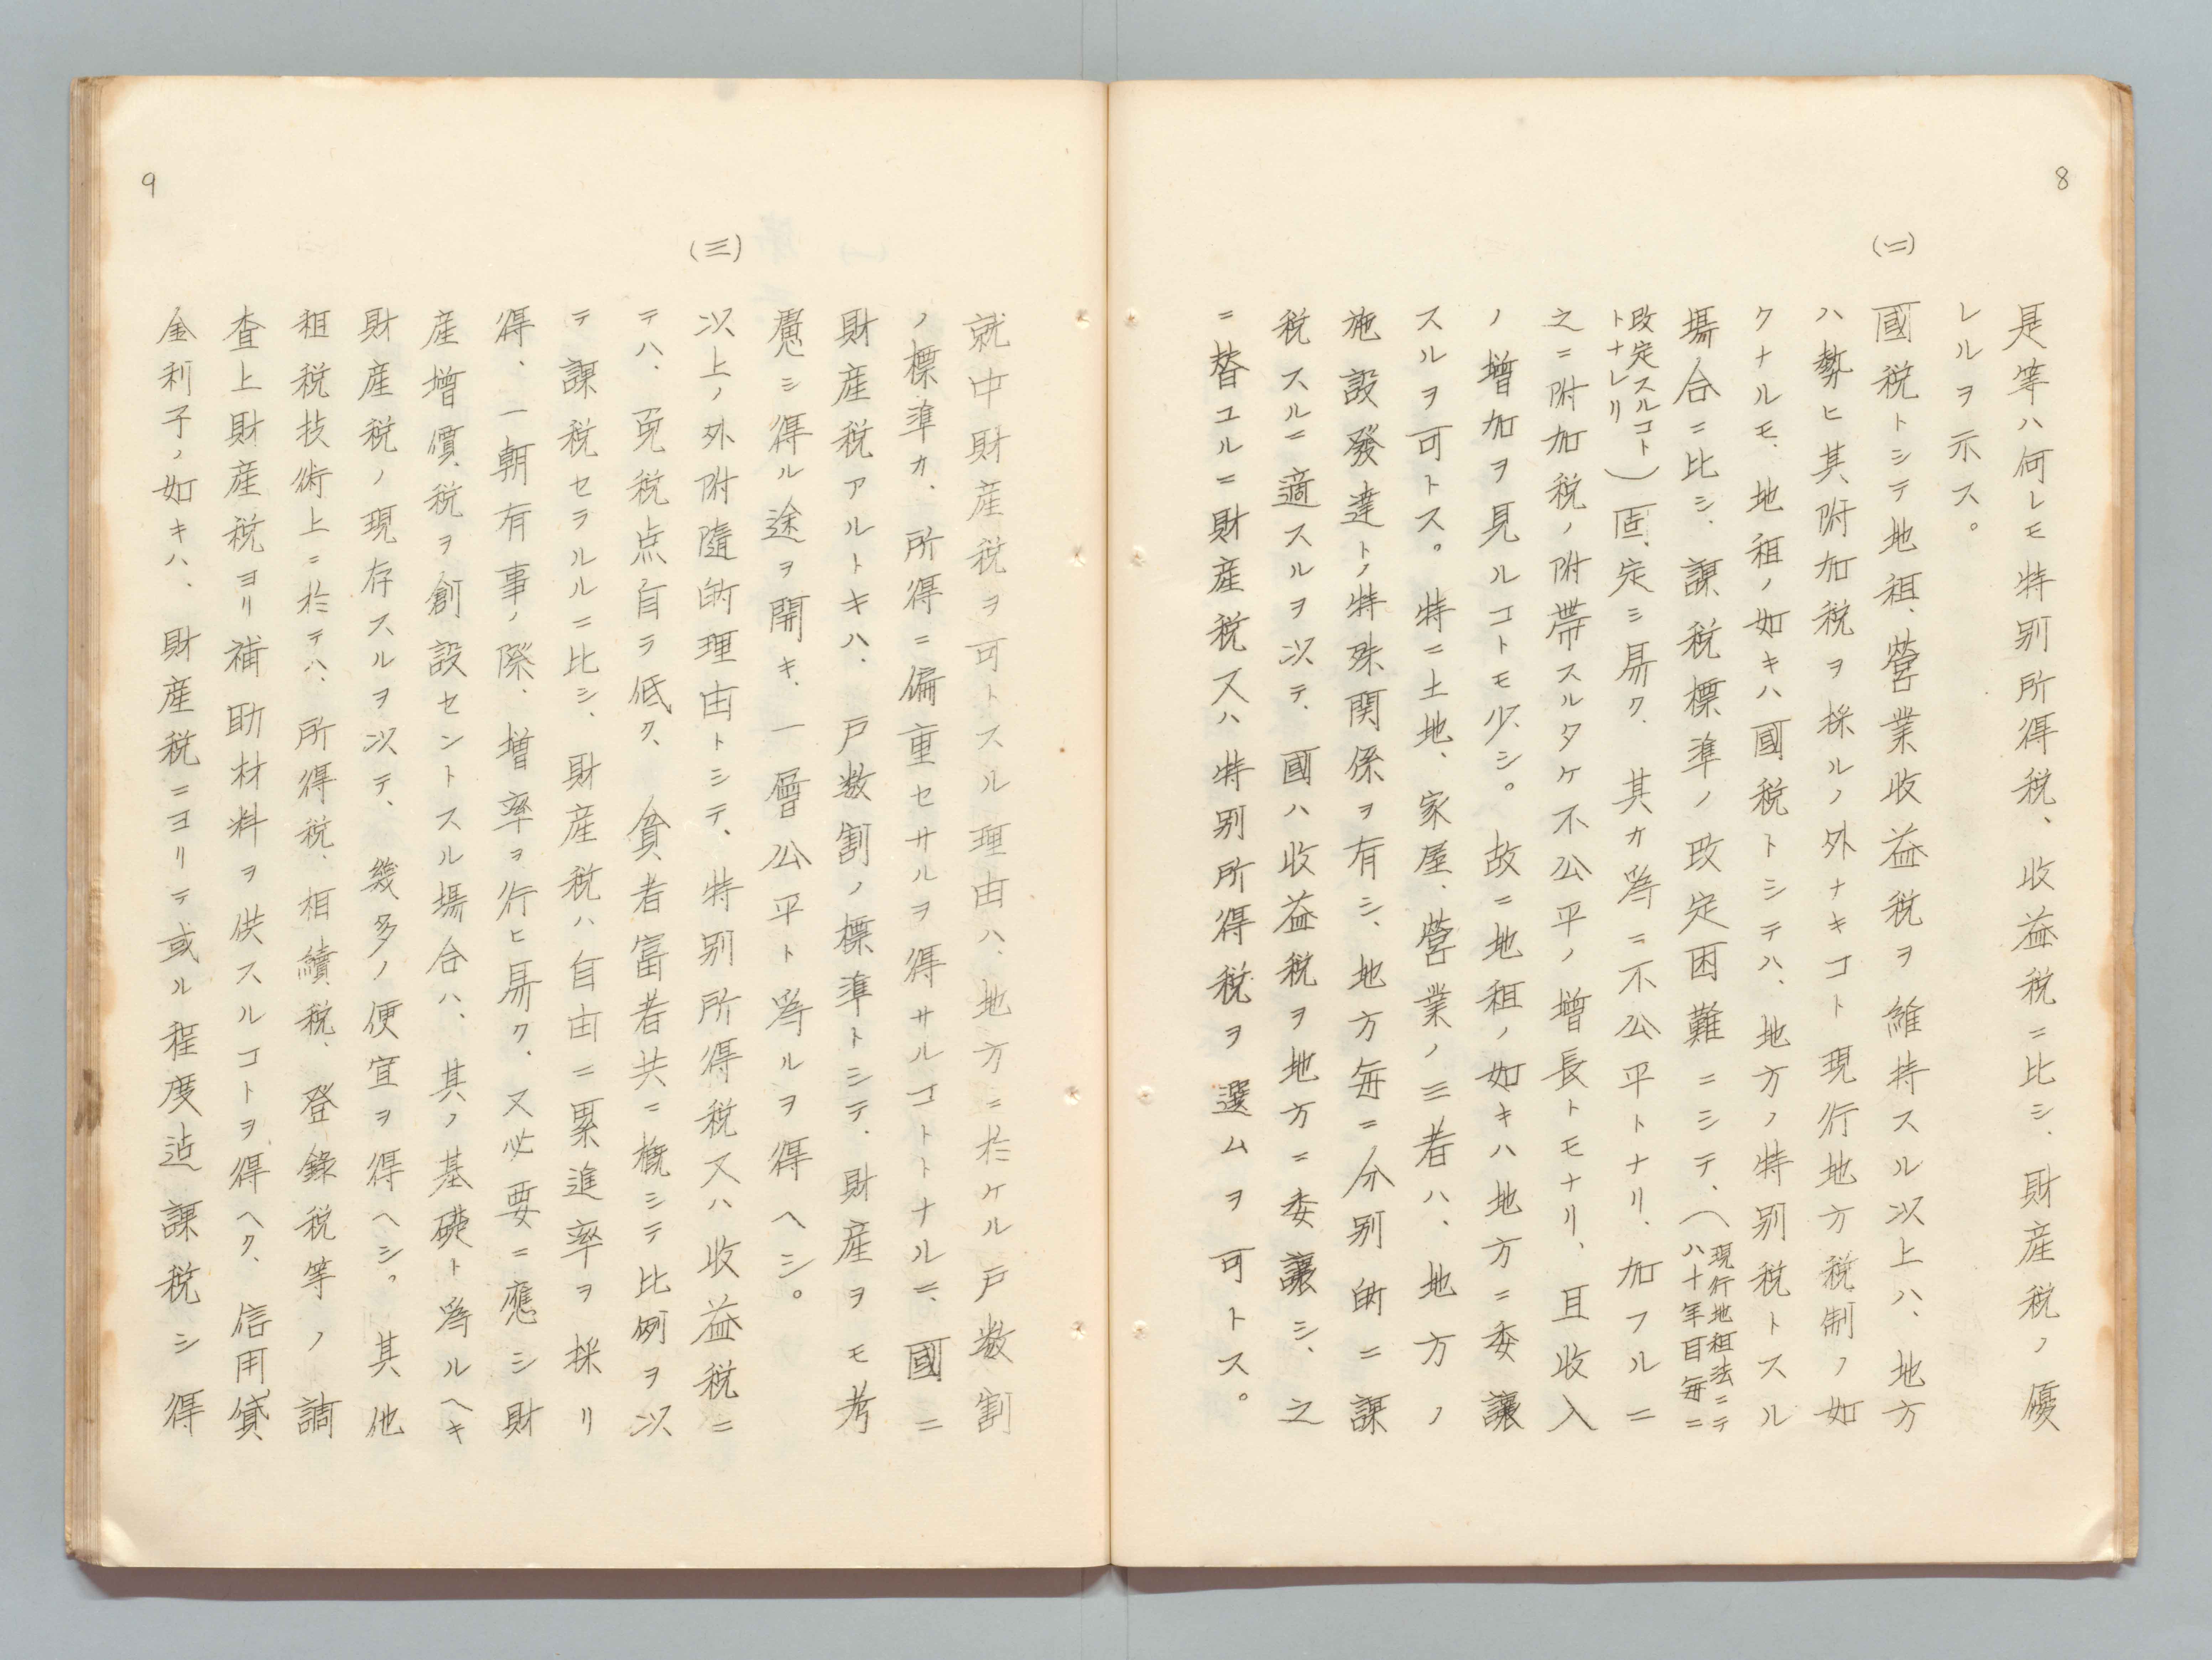 8
是等ハ何レモ特別所得税、收益税ニ比シ、財産税ノ優
レルヲ示ス。
(二)
國税トシテ地租、營業收益税ヲ維持スル以上ハ、地方
ハ勢ヒ其附加税ヲ採ルノ外ナキコト現行地方税制ノ如
クナルモ、地租ノ如キハ國税トシテハ、地方ノ特別税トスル
場合ニ比シ、課税標準ノ改定困難ニシテ、(現行地租法ニテ
ハ十年目毎ニ
改定スルコト
トナレリ)固定シ易ク、其カ爲ニ不公平トナリ、加フルニ
之ニ附加税ノ附帶スルタケ不公平ノ增長トモナリ、且收入
ノ增加ヲ見ルコトモ少シ。故ニ地租ノ如キハ地方ニ委讓
スルヲ可トス。特ニ土地、家屋、營業ノ三者ハ、地方ノ
施設發達ト特殊関係ヲ有シ、地方毎ニ分別的ニ課
税スルニ適スルヲ以テ、國ハ收益税ヲ地方ニ委讓シ、之
ニ替ユルニ財産税又ハ特別所得税ヲ選ムヲ可トス。
9
就中財産税ヲ可トスル理由ハ、地方ニ於ケル戸数割
ノ標準カ、所得ニ偏重セサルヲ得サルコトトナルニ、國ニ
財産税アルトキハ、戸数割ノ標準トシテ、財産ヲモ考
慮シ得ル途ヲ開キ、一層公平ト爲ルヲ得ヘシ。
(三)
以上ノ外附隨的理由トシテ、特別所得税又ハ收益税ニ
テハ、免税点自ラ低ク、貧者富者共ニ概シテ比例ヲ以
テ課税セラルルニ比シ、財産税ハ自由ニ累進率ヲ採リ
得、一朝有事ノ際、增率ヲ行ヒ易ク、又必要ニ應シ財
産增價税ヲ創設セントスル場合ハ、其ノ基礎ト爲ルヘキ
財産税ノ現存スルヲ以テ、幾多ノ便宜ヲ得ヘシ。其他
租税技術上ニ於テハ、所得税、相續税、登錄税等ノ調
査上財産税ヨリ補助材料ヲ供スルコトヲ得ヘク、信用貸
金利子ノ如キハ、財産税ニヨリテ或ル程度迠課税シ得